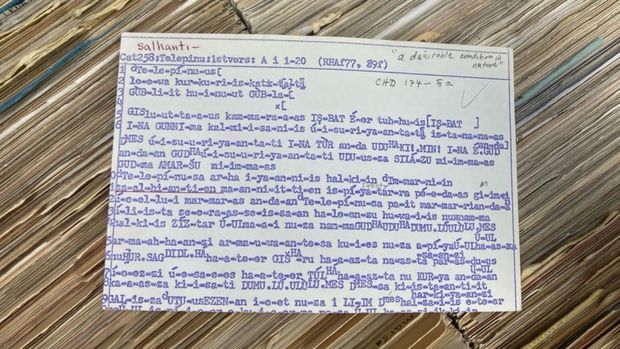 salhanti-
"a desirable condition in nature"
Cat258:Telepinu:1stvers: A i 1-20 (RHAf77, 89f)
CHD
1 dTe-le-pí-nu-us[
2 le-e-wa kur-ku-ri-is-
3 GÙB-li-it hu-i-nu-ut GÙB-la-[
4 x[
5 GISlu-ut-ta-us kam-ma-ra-a-as IṢ-BAT É-er tuh-hu-is[IṢ-BAT ]
6 I-NA GUNNI-ma kal-mi-i-sa-ni-is ú-i-su-ri-ya-an-ta-ti is-ta-na-na-as
an-da]
DMES ú-i-su-u-ri-ya-an-ta-ti I-NA TÙR an-da UDUHAKI!.MIN! I-NA É.GUD
an-da-an GUDHAú-i-su-u-ri-ya-an-ta-ti UDU-us-za SILA-ZU mi-im-ma-as
GUD-ma AMAR-SU mi-im-ma-as
0dTe-le-pí-nu-sa ar-ha i-ya-an-ni-is hal-ki-in dIm-mar-ni-in
1sa-al-hi-an-ti-en ma-an-ni-it-ti-en is-pí-ya-tar-ra pé-e-da-as gi-im-i
2ú-e-el-lu-i mar-mar-as an-da-an dTe-le-pí-nu-sa pa-it mar-mar-ri-an-da-a
3ú-li-is-ta se-e-ra-as-se-is-sa-an ha-le-en-zu hu-wa-i-is nu nam-ma
4hal-ki-is ZÍZ-tar Ú-UL ma-a-i nu-za nam-ma GUDHAUDUHADUMU.LÚ.ULÙLU.MES
Ú-UL
5ar-ma-ah-ha-an-zi ar-mu-u-wa-an-te-sa ku-i-es nu-za a-pí-ya Ú-UL ha-as-sa-an-zi
6nu HUR.SAGDIDL.HA ha-a-te-er GISHA-ru ha-a-az-ta na-as-ta pár-as-du-us
Ú-UL
7ú-e-ez-zi ú-e-sa-e-es ha-a-te-er TÚLHA ha-a-az-ta nu KUR-ya an-da-an
8ka-a-as-za ki-i-sa-ti DUMU.LÚ.ULÙLU.MES DMES-sa ki-is-ta-an-ti-it
har-ki-ya-an-zi
9GAL-is-za dUTU-us EZEN-an i-e-et nu-za 1 LI-IM DMES hal-za-i-is e-te-er